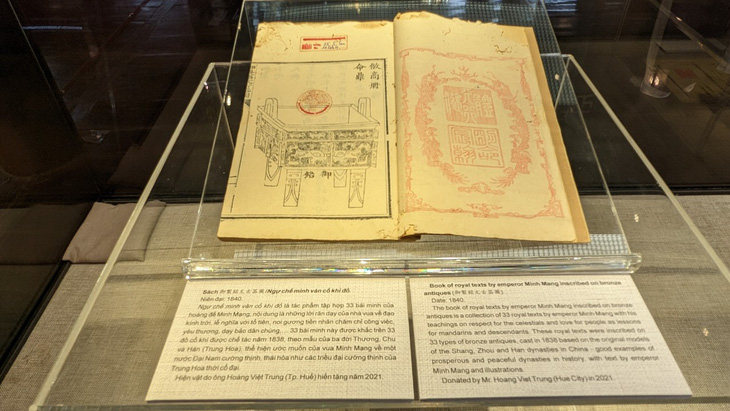 倣商冊
命鼎
Sách 御製銘文古器圖 /Ngự chế minh văn cổ khí đồ.
Niên đại: 1840.
Ngự chế minh văn cổ khí đồ là tác phẩm tập hợp 33 bài minh của
hoàng đế Minh Mạng, nội dung là những lời răn dạy của nhà vua về đạo
kính trời, lễ nghĩa với tổ tiên, noi gương tiền nhân chăm chỉ công việc,
yêu thương, dạy bảo dân chúng, ... 33 bài minh này được khắc trên 33
đồ cổ khí được chế tác năm 1838, theo mẫu của ba đời Thương, Chu
và Hán (Trung Hoa), thể hiện ước muốn của vua Minh Mạng về một
nước Đại Nam cường thịnh, thái hòa như các triều đại cường thịnh của
Trung Hoa thời cổ đại.
Hiện vật do ông Hoàng Việt Trung (Tp. Huế) hiến tặng năm 2021.
Book of royal texts by emperor Minh Mạng inscribed on bronze
antiques (御製銘文古器圖)
Date: 1840.
The book of royal texts by emperor Minh Mạng inscribed on bronze
antiques is a collection of 33 royal texts by emperor Minh Mạng with his
teachings on respect for the celestials and love for people as lessons
for mandarins and descendants. These royal texts were inscribed on
33 types of bronze antiques, cast in 1838 based on the original models
of the Shang, Zhou and Han dynasties in China - good examples of
prosperous and peaceful dynasties in history, with text by emperor
Minh Mạng and illustrations.
Donated by Mr. Hoàng Việt Trung (Huế City) in 2021.